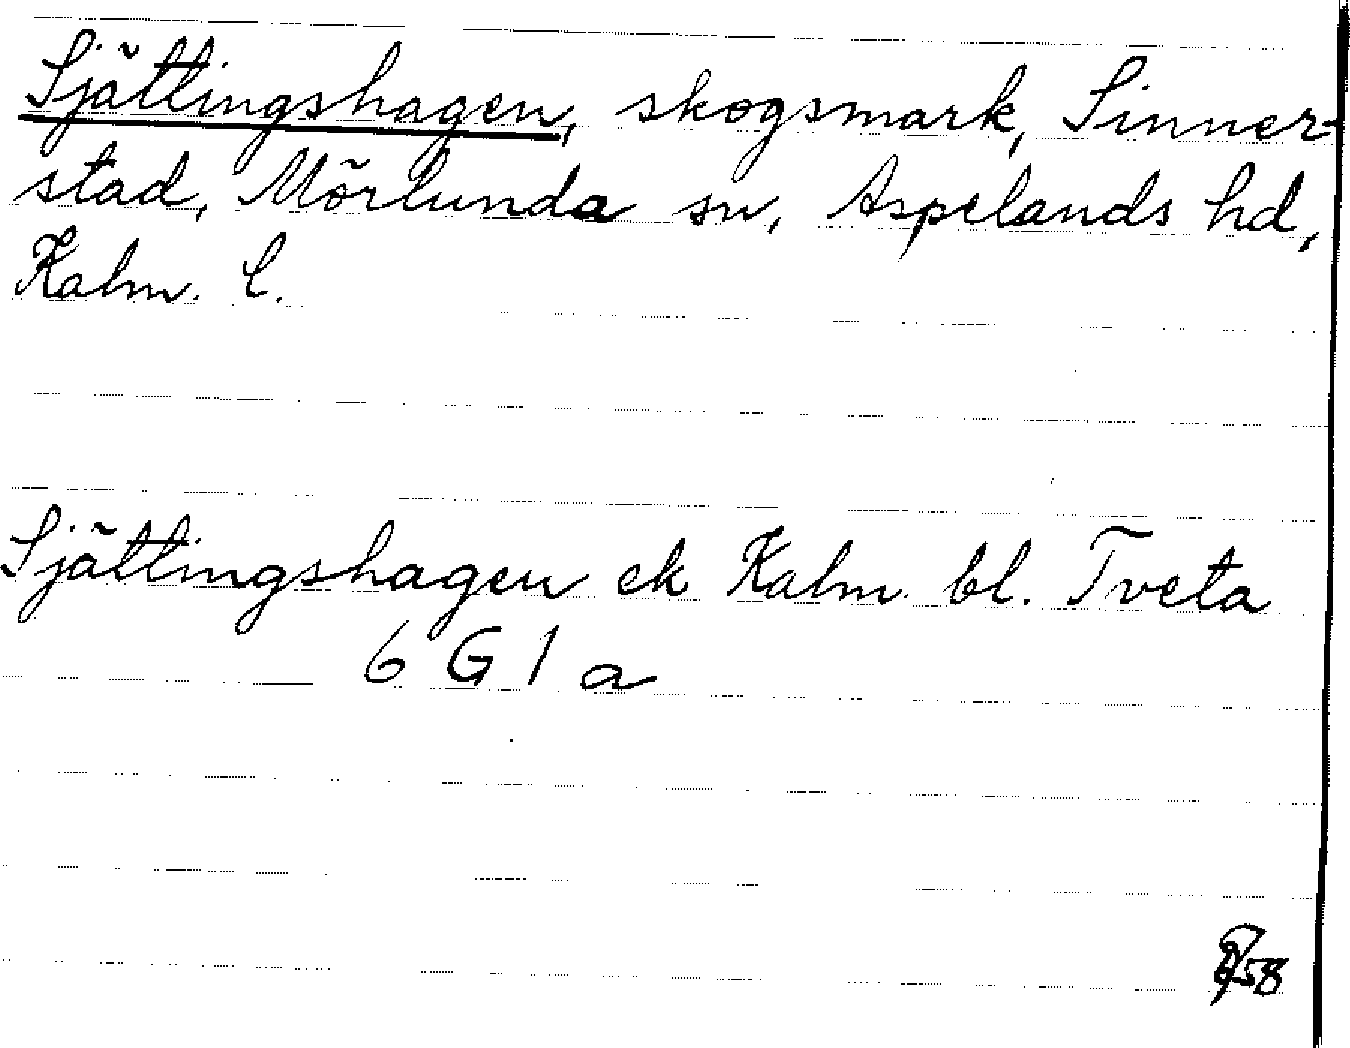 Sjättingshagen, skogsmark, Sinner-
stad, Mörlunda sn, Aspelands hd,
Kalm. l.
Sjättingshagen ek Kalm. bl. Tveta
6 G 1 a